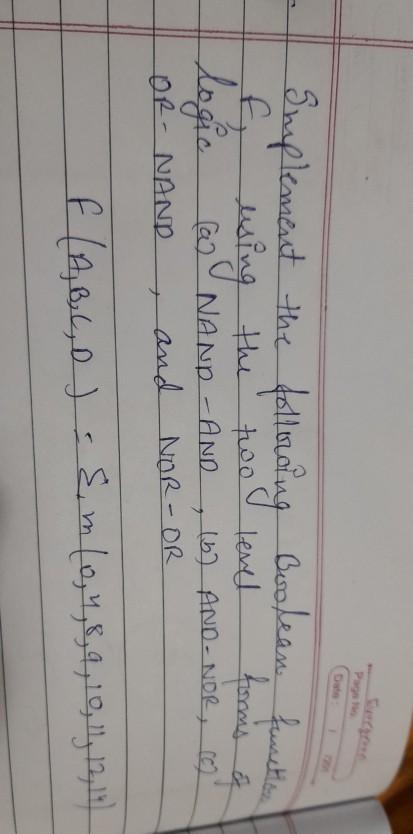 Evergreen
Page No.
Date: / /20
Implement the following Boolean function
F, using the two level forms of
logic (a) NAND-AND, (b) AND-NOR, (c)
OR-NAND, and NOR-OR
F(A,B,C,D) = Σm(0,4,8,9,10,11,12,14)